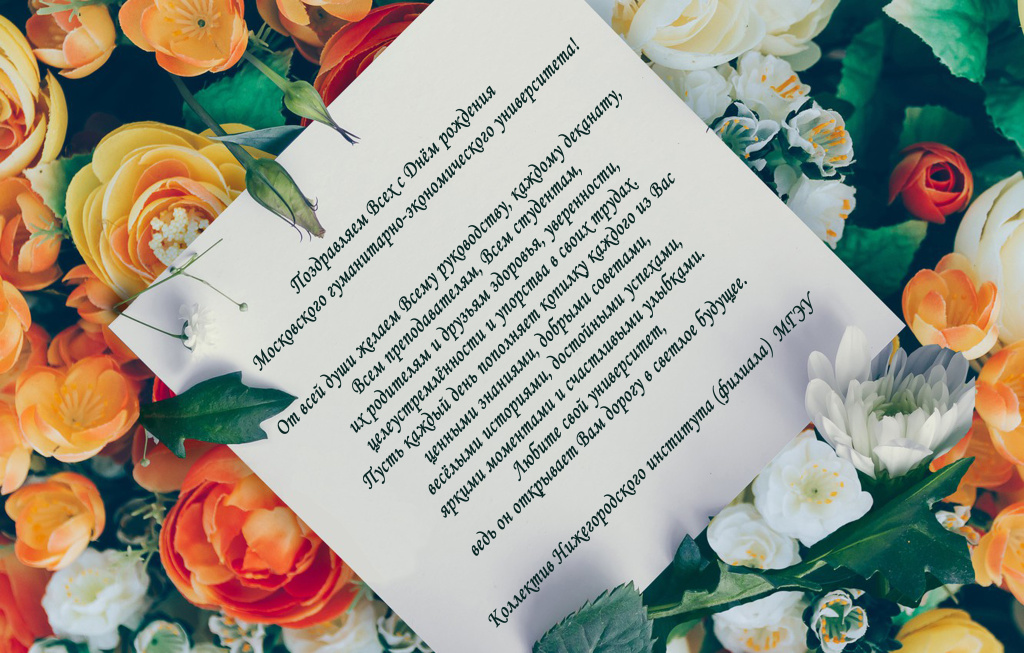 Поздравляем Всех с Днём рождения
Московского гуманитарно-экономического университета!
От всей души желаем Всему руководству, каждому деканату,
Всем преподавателям, Всем студентам,
их родителям и друзьям здоровья, уверенности,
целеустремлённости и упорства в своих трудах
Пусть каждый день пополняет копилку каждого из Вас
ценными знаниями, добрыми советами,
весёлыми историями, достойными успехами,
яркими моментами и счастливыми улыбками.
Любите свой университет,
ведь он открывает Вам дорогу в светлое будущее.
Коллектив Нижегородского института (филиала) МГЭУ